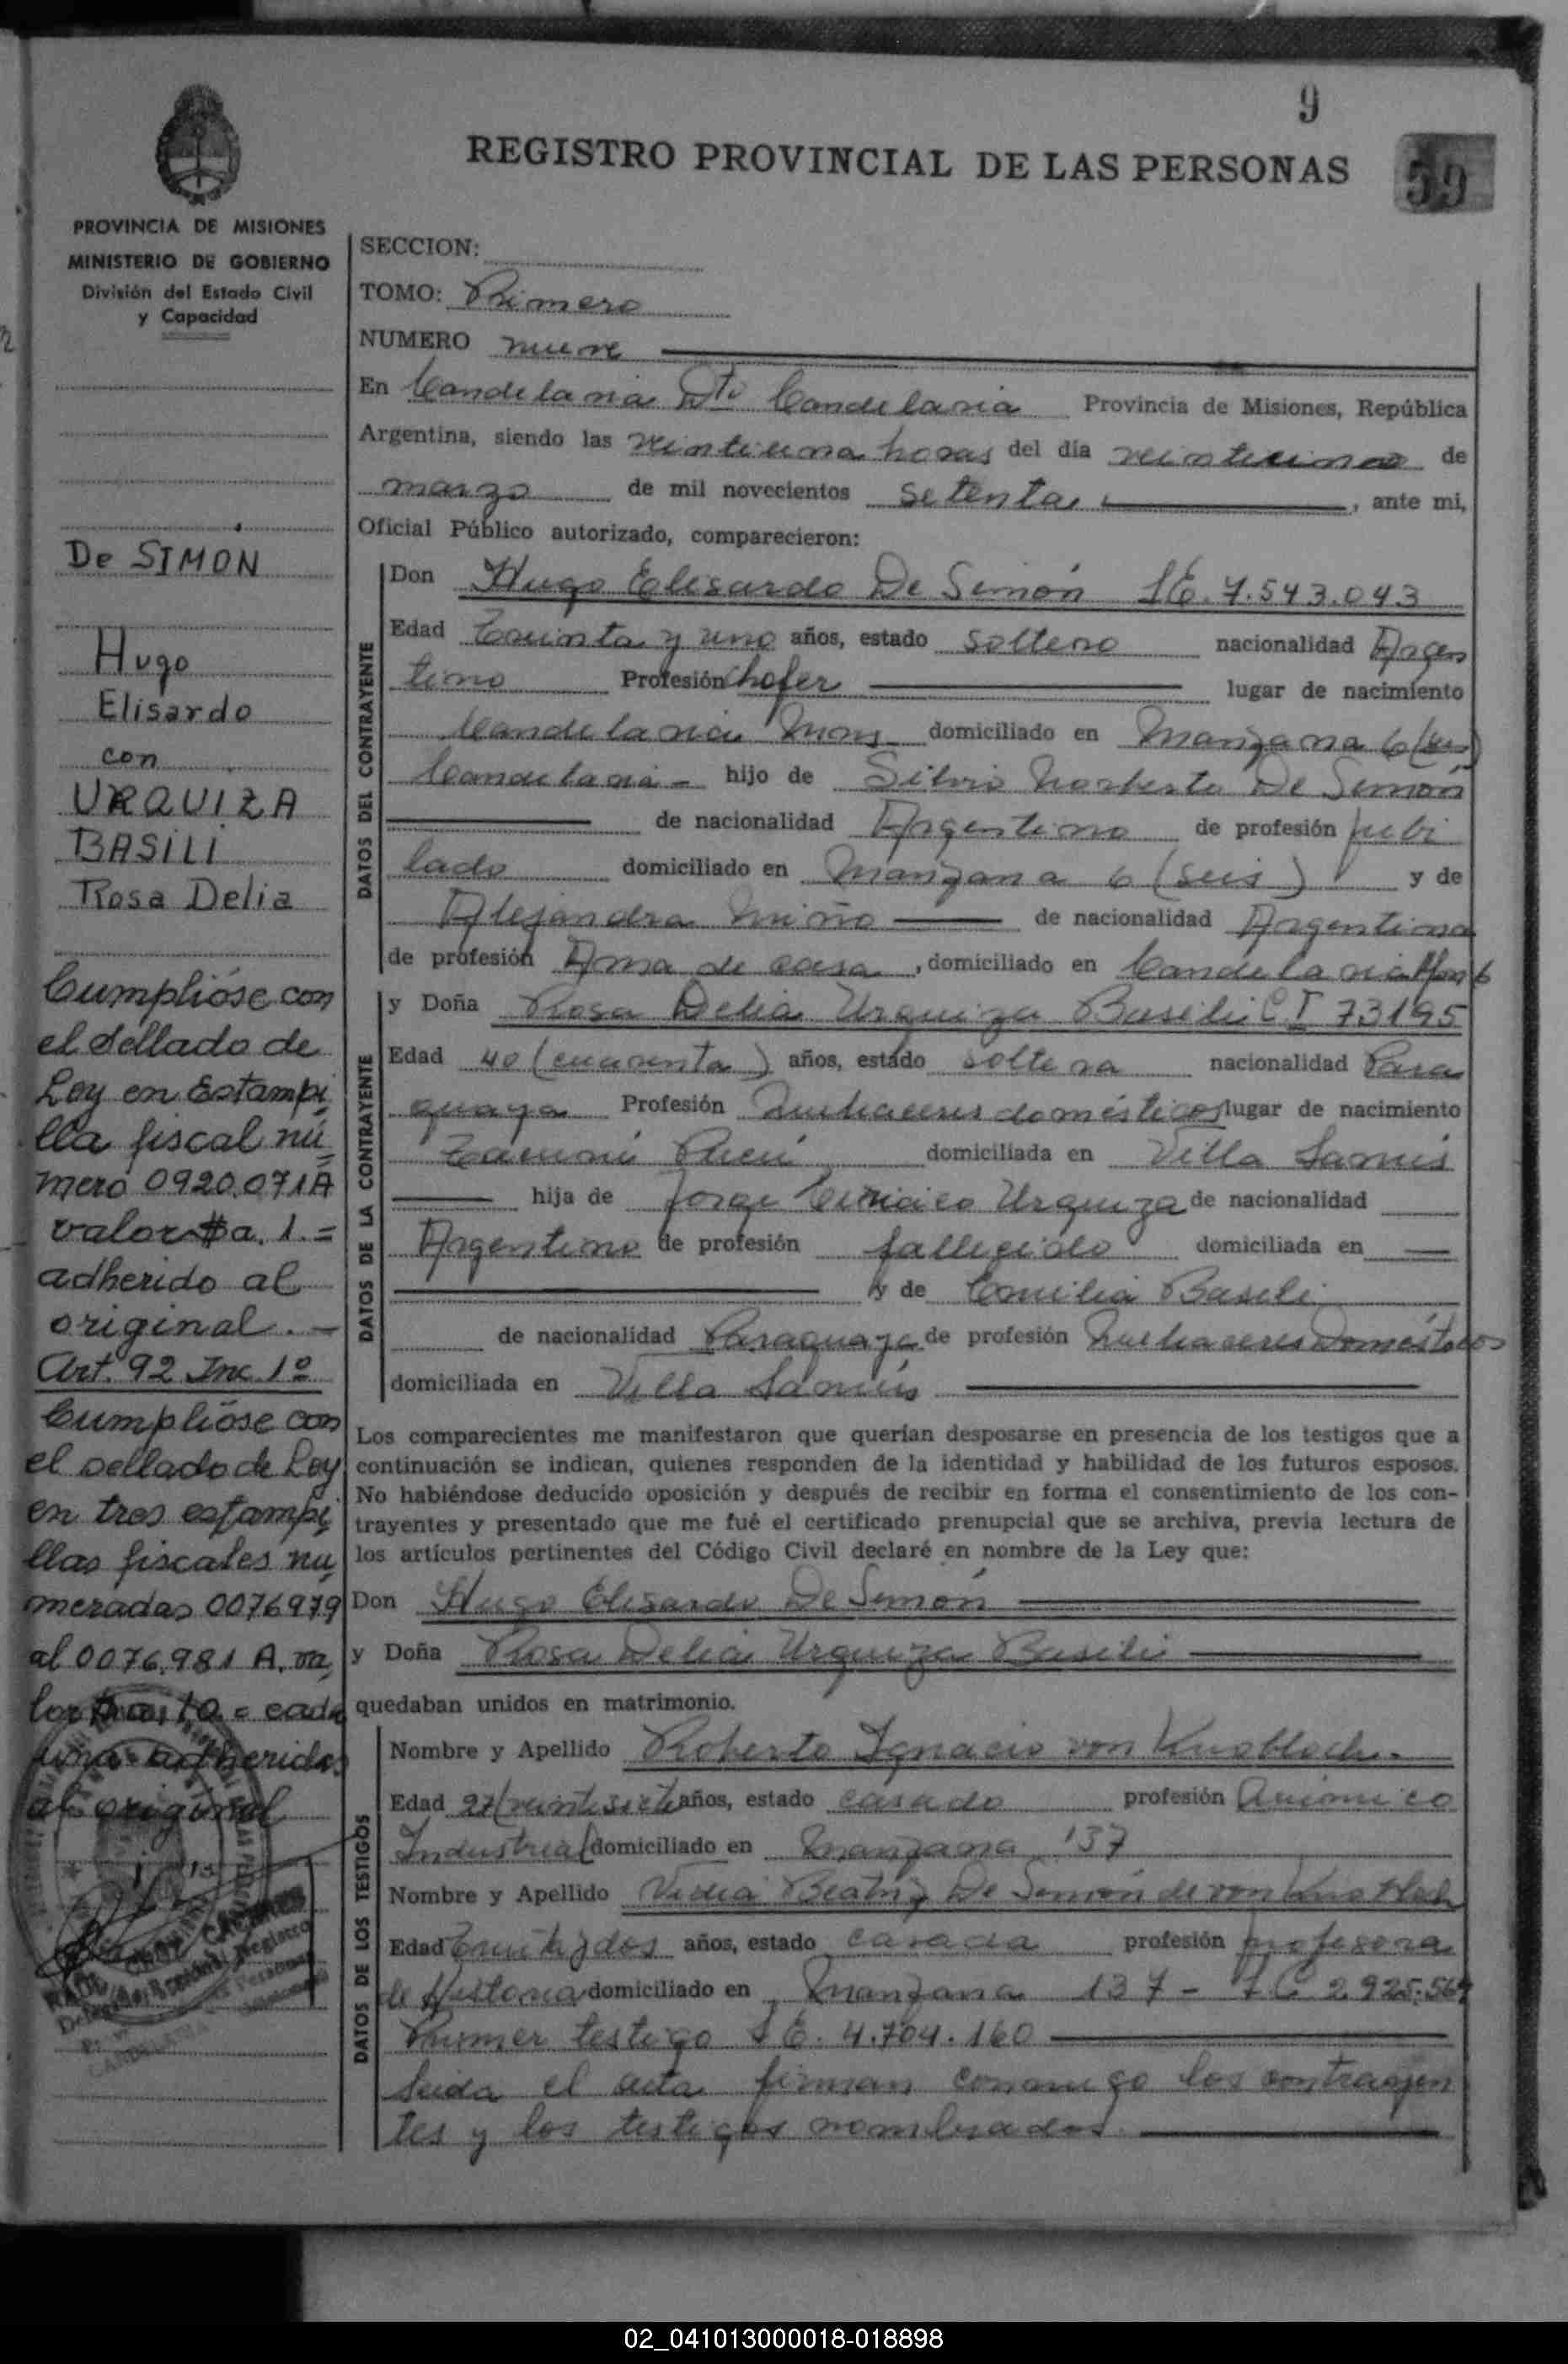 9
REGISTRO PROVINCIAL DE LAS PERSONAS
59
PROVINCIA DE MISIONES
MINISTERIO DE GOBIERNO
División del Estado Civil
y Capacidad
De SIMON
Hugo
Elisardo
con
URQUIZA
BASILI
Rosa Delia
Cumplióse con
el sellado de
Ley en Estampi
lla fiscal nú
mero 0920.071A
valor $a. 1.=
adherido al
original.-
Art. 92 Inc. 1º
Cumplióse con
el sellado de Ley
en tres estampi
llas fiscales nu
meradas 0076979
al 0076.981 A. va
lor 10= cada
una adheridas
al original
SECCION:
TOMO: Primero
NUMERO nueve
En Candelaria Dto Candelaria Provincia de Misiones, República
Argentina, siendo las veintiuna horas del día de
marzo de mil novecientos setenta, ante mi,
Oficial Público autorizado, comparecieron:
DATOS DEL CONTRAYENTE
Don Hugo Elisardo De Simón LE. 7.543.043
Edad Treinta y uno años, estado soltero nacionalidad Argen
tino Profesión Chofer lugar de nacimiento
Candelaria Mnes domiciliado en Manzana 6 (seis)
Candelaria - hijo de Silvio Norberto De Simón
de nacionalidad Argentino de profesión jubi
lado domiciliado en Manzana 6 (seis) y de
Alejandra Miño de nacionalidad Argentina
de profesión Ama de casa, domiciliado en Candelaria Man 6
DATOS DE LA CONTRAYENTE
y Doña Rosa Delia Urquiza Basili C I 73195
Edad 40 (cuarenta) años, estado soltera nacionalidad Para
guaya Profesión Quehaceres domésticos lugar de nacimiento
domiciliada en Villa Lanús
hija de Jorge Ciriaco Urquiza de nacionalidad
Argentino de profesión fallecido domiciliada en
y de Emilia Basili
de nacionalidad Paraguaya de profesión Quehaceres Domésticos
domiciliada en Villa Lanús
Los comparecientes me manifestaron que querían desposarse en presencia de los testigos que a
continuación se indican, quienes responden de la identidad y habilidad de los futuros esposos.
No habiéndose deducido oposición y después de recibir en forma el consentimiento de los con-
trayentes y presentado que me fué el certificado prenupcial que se archiva, previa lectura de
los artículos pertinentes del Código Civil declaré en nombre de la Ley que:
Don Hugo Elisardo De Simón
y Doña Rosa Delia Urquiza Basili
quedaban unidos en matrimonio.
DATOS DE LOS TESTIGOS
Nombre y Apellido Roberto Ignacio von Knobloch.
Edad 27 (veintisiete años, estado casado profesión Químico
Industrial domiciliado en Manzana 137
Nombre y Apellido Beatriz De Simón de von Knobloch
Edad Treinta y dos años, estado casada profesión profesora
de Historia domiciliado en Manzana 137 - 2.925.564
Primer testigo LE. 4.704.160
Leida el acta firman conmigo los contrayen
tes y los testigos nombrados
02_041013000018-018898